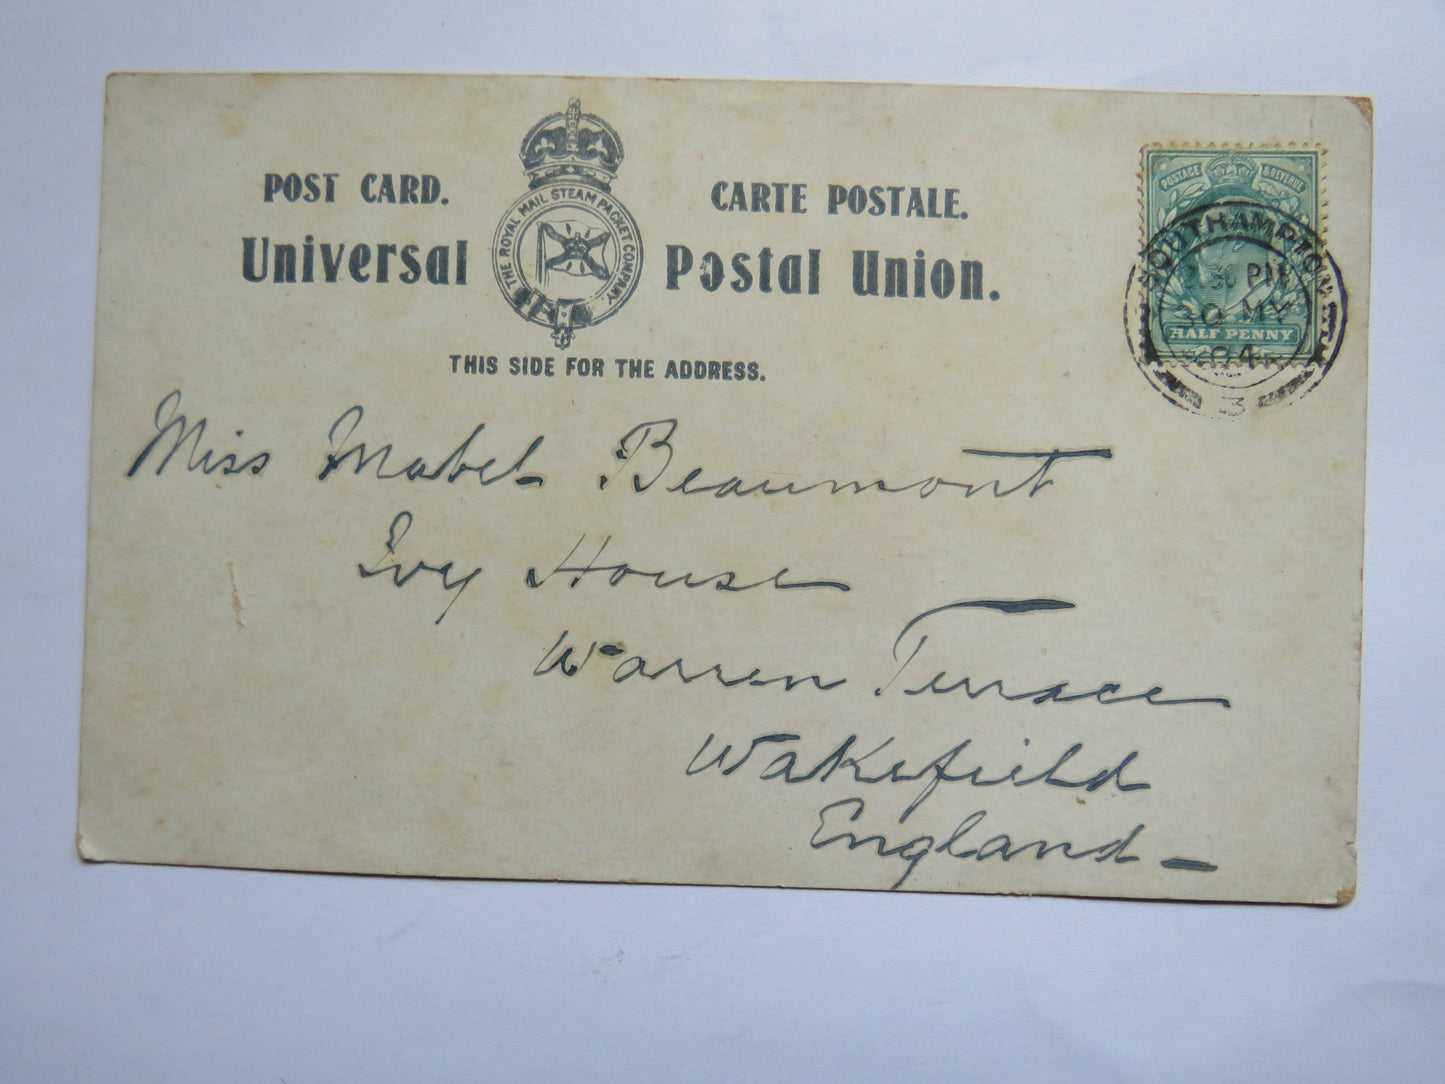 POST CARD.
CARTE POSTALE.
THE ROYAL MAIL STEAM PACKET COMPANY
Universal
Postal Union.
THIS SIDE FOR THE ADDRESS.
POSTAGE & REVENUE
HALF PENNY
SOUTHAMPTON
30 PM
30 MY
04
3
Miss Mabel Beaumont
Ivy House
Warren Terrace
Wakefield
England